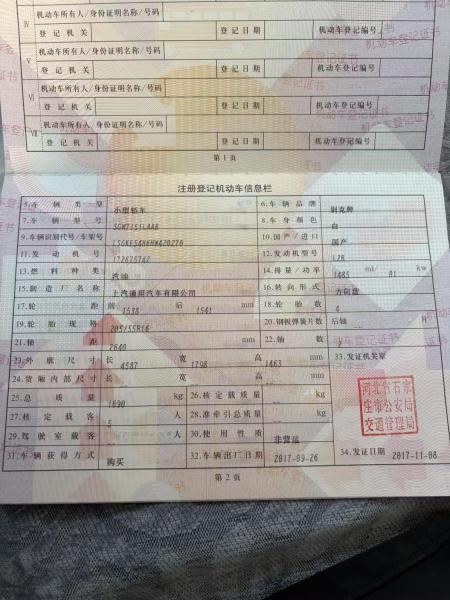 IV 机动车所有人/身份证明名称/号码
登记机关 登记日期 机动车登记编号
V 机动车所有人/身份证明名称/号码
登记机关 登记日期 机动车登记编号
VI 机动车所有人/身份证明名称/号码
登记机关 登记日期 机动车登记编号
VII 机动车所有人/身份证明名称/号码
登记机关 登记日期 机动车登记编号
第1页
注册登记机动车信息栏
5.车辆类型 小型轿车 6.车辆品牌 别克牌
7.车辆型号 SGM7151LAAB 8.车身颜色 白
9.车辆识别代号/车架号 LSGKE54H6HW420270 10.国产/进口 国产
11.发动机号 172675742 12.发动机型号 L2B
13.燃料种类 汽油 14.排量/功率 1485 ml/ 81 kw
15.制造厂名称 上汽通用汽车有限公司 16.转向形式 方向盘
17.轮距 前 1538 后 1541 mm 18.轮胎数 4
19.轮胎规格 205/55R16 20.钢板弹簧片数 后轴 片
21.轴距 2640 mm 22.轴数
23.外廓尺寸 长 4587 宽 1798 高 1463 mm 33.发证机关章
24.货厢内部尺寸 长 宽 高 mm
25.总质量 1690 kg 26.核定载质量 kg
27.核定载客 5 人 28.准牵引总质量 kg
29.驾驶室载客 人 30.使用性质 非营运
31.车辆获得方式 购买 32.车辆出厂日期 2017-09-26 34.发证日期 2017-11-08
河北省石家
庄市公安局
交通管理局
第2页